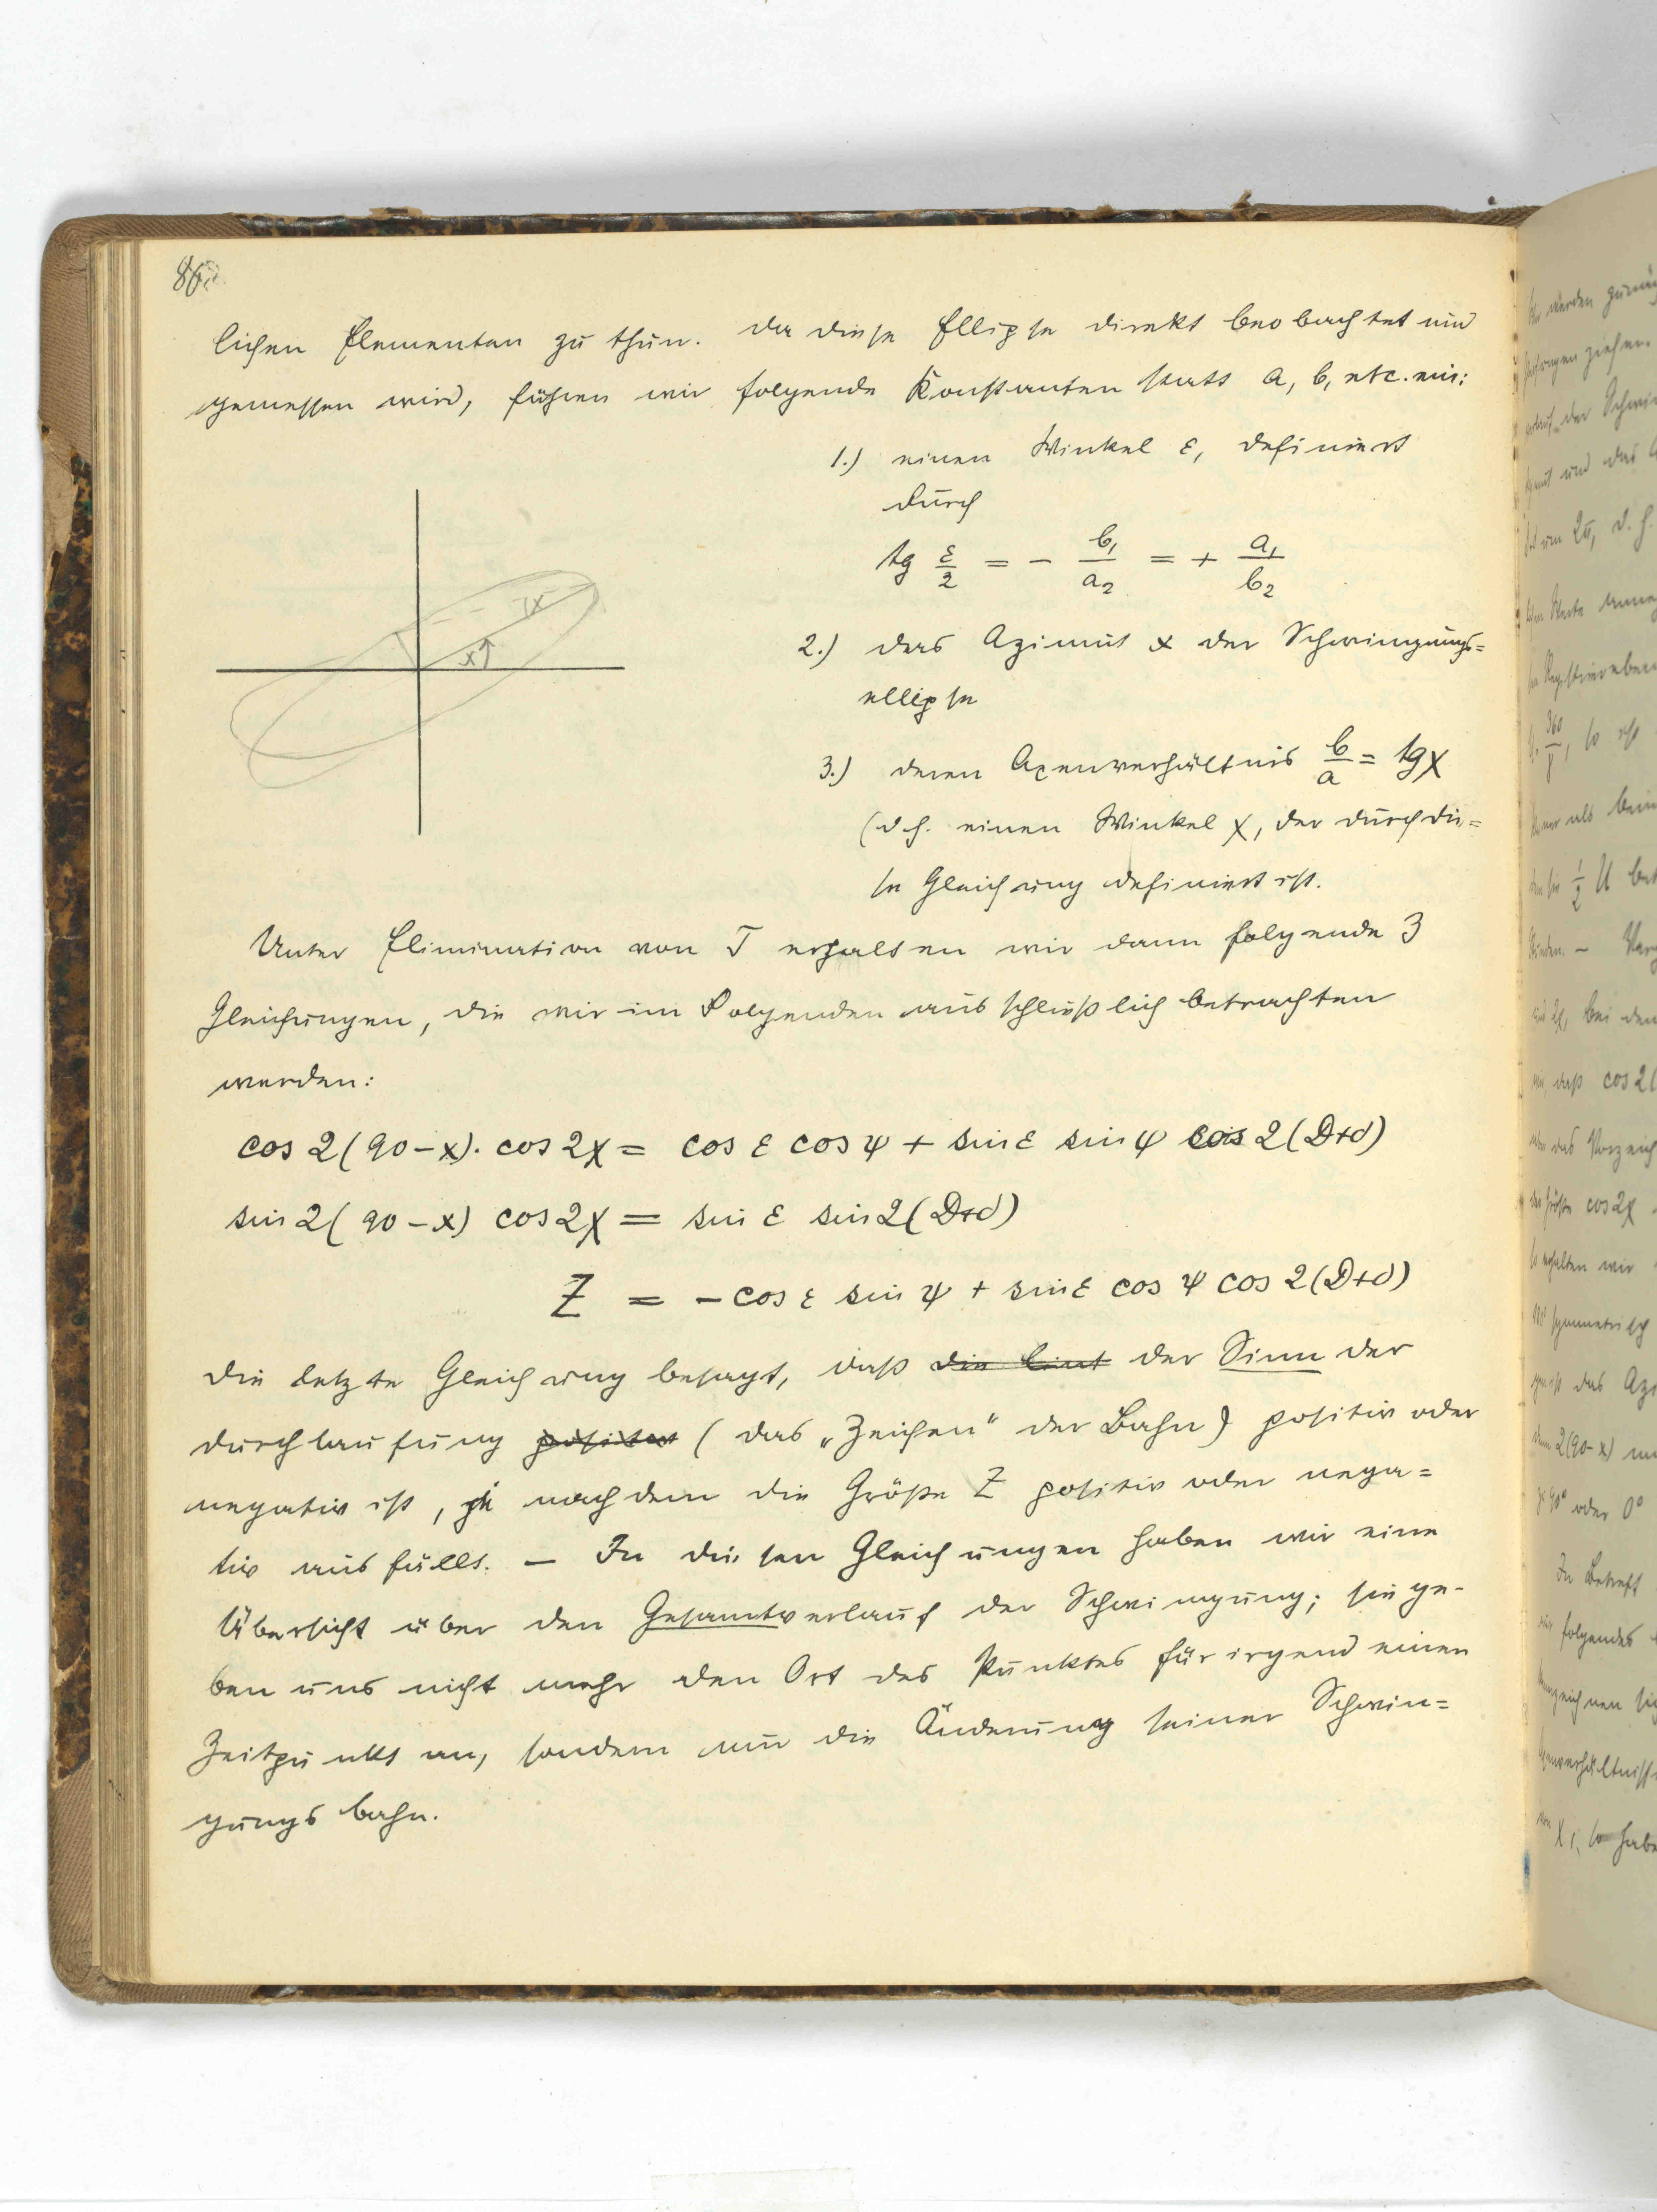 86.
lichen Elementen zu thun. Da diese Ellipse direkt beobachtet und
gemessen wird, führen wir folgende Konstanten statt a, b, etc. ein:
1.) einen Winkel ε, definiert
durch
tg ε/2 = - b₁/a₂ = + a₁/b₂
2.) das Azimut x der Schwingungs=
ellipse
3.) deren Axenverhältnis b/a = tg χ
(d.h. einen Winkel χ, der durch die=
se Gleichung definiert ist.
x
χ
Unter Elimination von T erhalten wir dann folgende 3
Gleichungen, die wir im Folgenden ausschließlich betrachten
werden:
cos 2(90-x). cos 2χ = cos ε cos ψ + sin ε sin ψ cos 2(D+d)
sin 2(90-x) cos 2χ = sin ε sin 2(D+d)
Z = - cos ε sin ψ + sin ε cos ψ cos 2(D+d)
Die letzte Gleichung besagt, daß die der Sinn der
Durchlaufung positiv (das „Zeichen“ der Bahn) positiv oder
negativ ist, je nachdem die Größe Z positiv oder nega=
tiv ausfällt. — In diesen Gleichungen haben wir eine
Übersicht über den Gesamtverlauf der Schwingung; sie ge-
ben uns nicht mehr den Ort des Punktes für irgend einen
Zeitpunkt an, sondern nur die Änderung seiner Schwin=
gungsbahn.